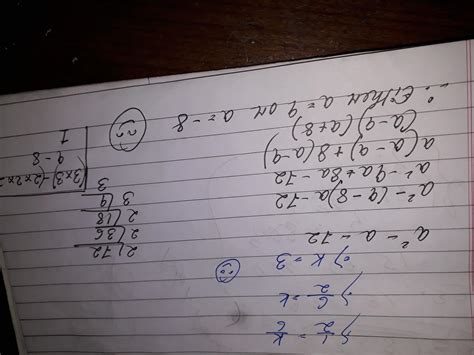 ⇒ 1/2 = k/6
⇒ 6/2 = k
⇒ k = 3
a² - a - 72
a² - (9 - 8)a - 72
a² - 9a + 8a - 72
a(a - 9) + 8(a - 9)
(a - 9)(a + 8)
∴ Either a = 9 or a = -8
2|72
2|36
2|18
3|9
3
(3×3) - (2×2×2
9 - 8
1